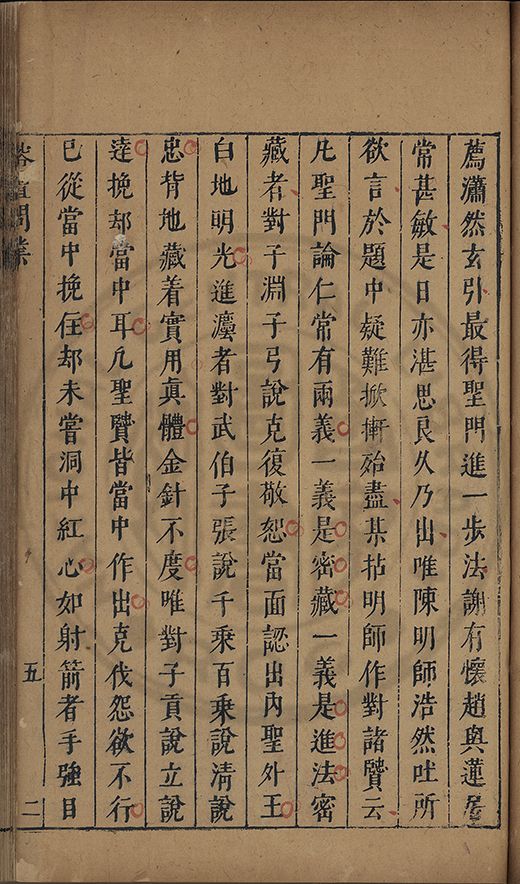 薦瀟然玄引最得聖門進一步法謝有懷趙與蓮居
常甚敏是日亦湛思良久乃出唯陳明師浩然吐所
欲言於題中疑難掀𢷾殆盡某拈明師作對諸賢云
凡聖門論仁常有兩義一義是密藏一義是進法密
藏者對子淵子弓說克復敬恕當面認出内聖外王
白地明光進瀍者對武伯子張說千乘百乘說清說
忠背地藏着實用眞體金針不度唯對子貢說立說
達挽却當中耳凡聖賢皆當中作出克伐怨欲不行
已從當中挽住却未嘗洞中紅心如射箭者手強目
榕壇問業
五
二